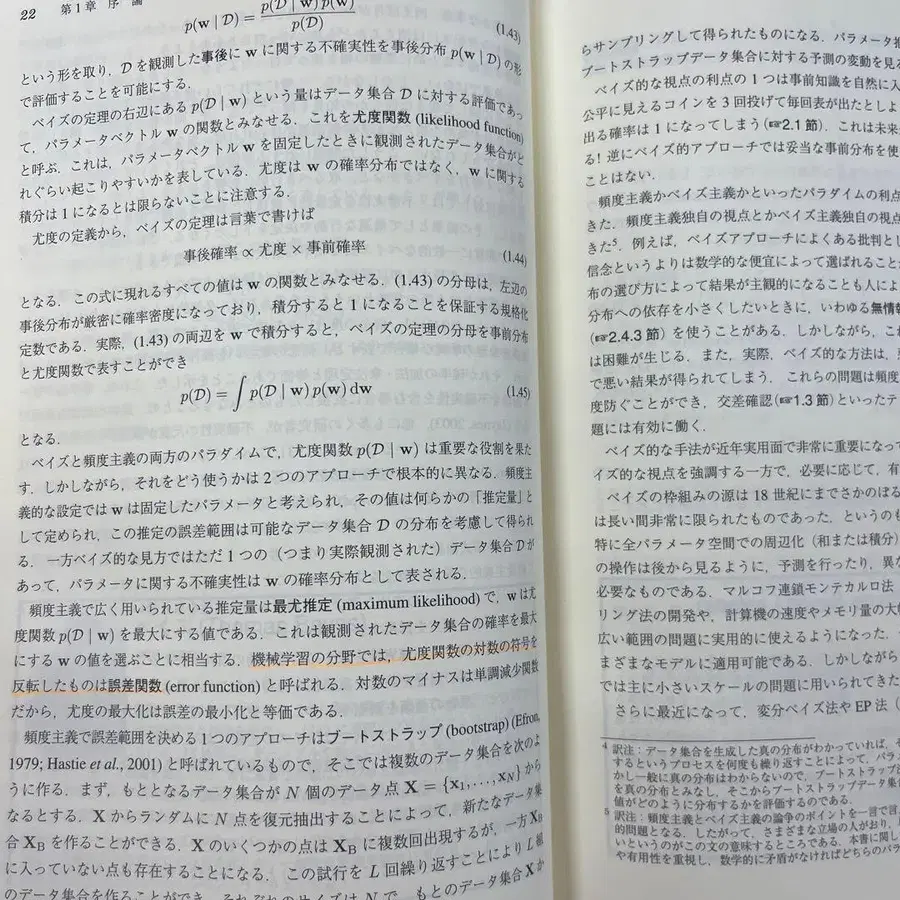 22 第1章 序 論
p(w | D) = p(D | w)p(w) / p(D) (1.43)
という形を取り，D を観測した事後に w に関する不確実性を事後分布 p(w | D) の形
で評価することを可能にする．
ベイズの定理の右辺にある p(D | w) という量はデータ集合 D に対する評価であっ
て，パラメータベクトル w の関数とみなせる．これを尤度関数 (likelihood function)
と呼ぶ．これは，パラメータベクトル w を固定したときに観測されたデータ集合がど
れぐらい起こりやすいかを表している．尤度は w の確率分布ではなく，w に関する
積分は 1 になるとは限らないことに注意する．
尤度の定義から，ベイズの定理は言葉で書けば
事後確率 ∝ 尤度 × 事前確率 (1.44)
となる．この式に現れるすべての値は w の関数とみなせる．(1.43) の分母は，左辺の
事後分布が厳密に確率密度になっており，積分すると 1 になることを保証する規格化
定数である．実際，(1.43) の両辺を w で積分すると，ベイズの定理の分母を事前分布
と尤度関数で表すことができ
p(D) = ∫ p(D | w) p(w) dw (1.45)
となる．
ベイズと頻度主義の両方のパラダイムで，尤度関数 p(D | w) は重要な役割を果た
す．しかしながら，それをどう使うかは 2 つのアプローチで根本的に異なる．頻度主
義的な設定では w は固定したパラメータと考えられ，その値は何らかの「推定量」と
して定められ，この推定の誤差範囲は可能なデータ集合 D の分布を考慮して得られ
る．一方ベイズ的な見方ではただ 1 つの（つまり実際観測された）データ集合 D が
あって，パラメータに関する不確実性は w の確率分布として表される．
頻度主義で広く用いられている推定量は最尤推定 (maximum likelihood) で，w は尤
度関数 p(D | w) を最大にする値である．これは観測されたデータ集合の確率を最大
にする w の値を選ぶことに相当する．機械学習の分野では，尤度関数の対数の符号を
反転したものは誤差関数 (error function) と呼ばれる．対数のマイナスは単調減少関数
だから，尤度の最大化は誤差の最小化と等価である．
頻度主義で誤差範囲を決める 1 つのアプローチはブートストラップ (bootstrap) (Efron,
1979; Hastie et al., 2001) と呼ばれているもので，そこでは複数のデータ集合を次のよ
うに作る．まず，もととなるデータ集合が N 個のデータ点 X = {x1, . . . , xN} から
なるとする．X からランダムに N 点を復元抽出することによって，新たなデータ集
合 XB を作ることができる．X のいくつかの点は XB に複数回出現するが，一方 XB
に入っていない点も存在することになる．この試行を L 回繰り返すことにより L 組
のデータ集合を作ることができ，それぞれのサイズは N で，もとのデータ集合 X か
らサンプリングして得られたものになる．パラメータ推
ブートストラップデータ集合に対する予測の変動を見る
ベイズ的な視点の利点の 1 つは事前知識を自然に入
公平に見えるコインを 3 回投げて毎回表が出たとしよ
出る確率は 1 になってしまう (☞2.1 節)．これは未来
る! 逆にベイズ的アプローチでは妥当な事前分布を使
ことはない．
頻度主義かベイズ主義かといったパラダイムの利点
きた．頻度主義独自の視点とかベイズ主義独自の視点
きた5．例えば，ベイズアプローチによくある批判とし
信念というよりは数学的な便宜によって選ばれること
布の選び方によって結果が主観的になることも人によ
分布への依存を小さくしたいときに，いわゆる無情報
(☞2.4.3 節) を使うことがある．しかしながら，これ
は困難が生じる．また，実際，ベイズ的な方法は，
で悪い結果が得られてしまう．これらの問題は頻度
度防ぐことができ，交差確認 (☞1.3 節) といったテ
題には有効に働く．
ベイズ的な手法が近年実用面で非常に重要になって
イズ的な視点を強調する一方で，必要に応じて，有
ベイズの枠組みの源は 18 世紀にまでさかのぼる
は長い間非常に限られたものであった．というのも
特に全パラメータ空間での周辺化（和または積分）
の操作は後から見るように，予測を行ったり，異な
必要なものである．マルコフ連鎖モンテカルロ法
リング法の開発や，計算機の速度やメモリ量の大幅
広い範囲の問題に実用的に使えるようになった．
まざまなモデルに適用可能である．しかしながら
では主に小さいスケールの問題に用いられてきた
さらに最近になって，変分ベイズ法や EP 法（
4 訳注：データ集合を生成した真の分布がわかっていれば，そ
するというプロセスを何度も繰り返すことによって，パラ
かし一般に真の分布はわからないので，ブートストラップ
を真の分布とみなし，そこからブートストラップデータ集
値がどのように分布するかを評価するのである．
5 訳注：頻度主義とベイズ主義の論争のポイントを一言で言
的問題となる．したがって，さまざまな立場の人がおり，
いというのがこの文の意味するところである．本書に関し
や有用性を重視し，数学的に矛盾がなければどちらのパラ